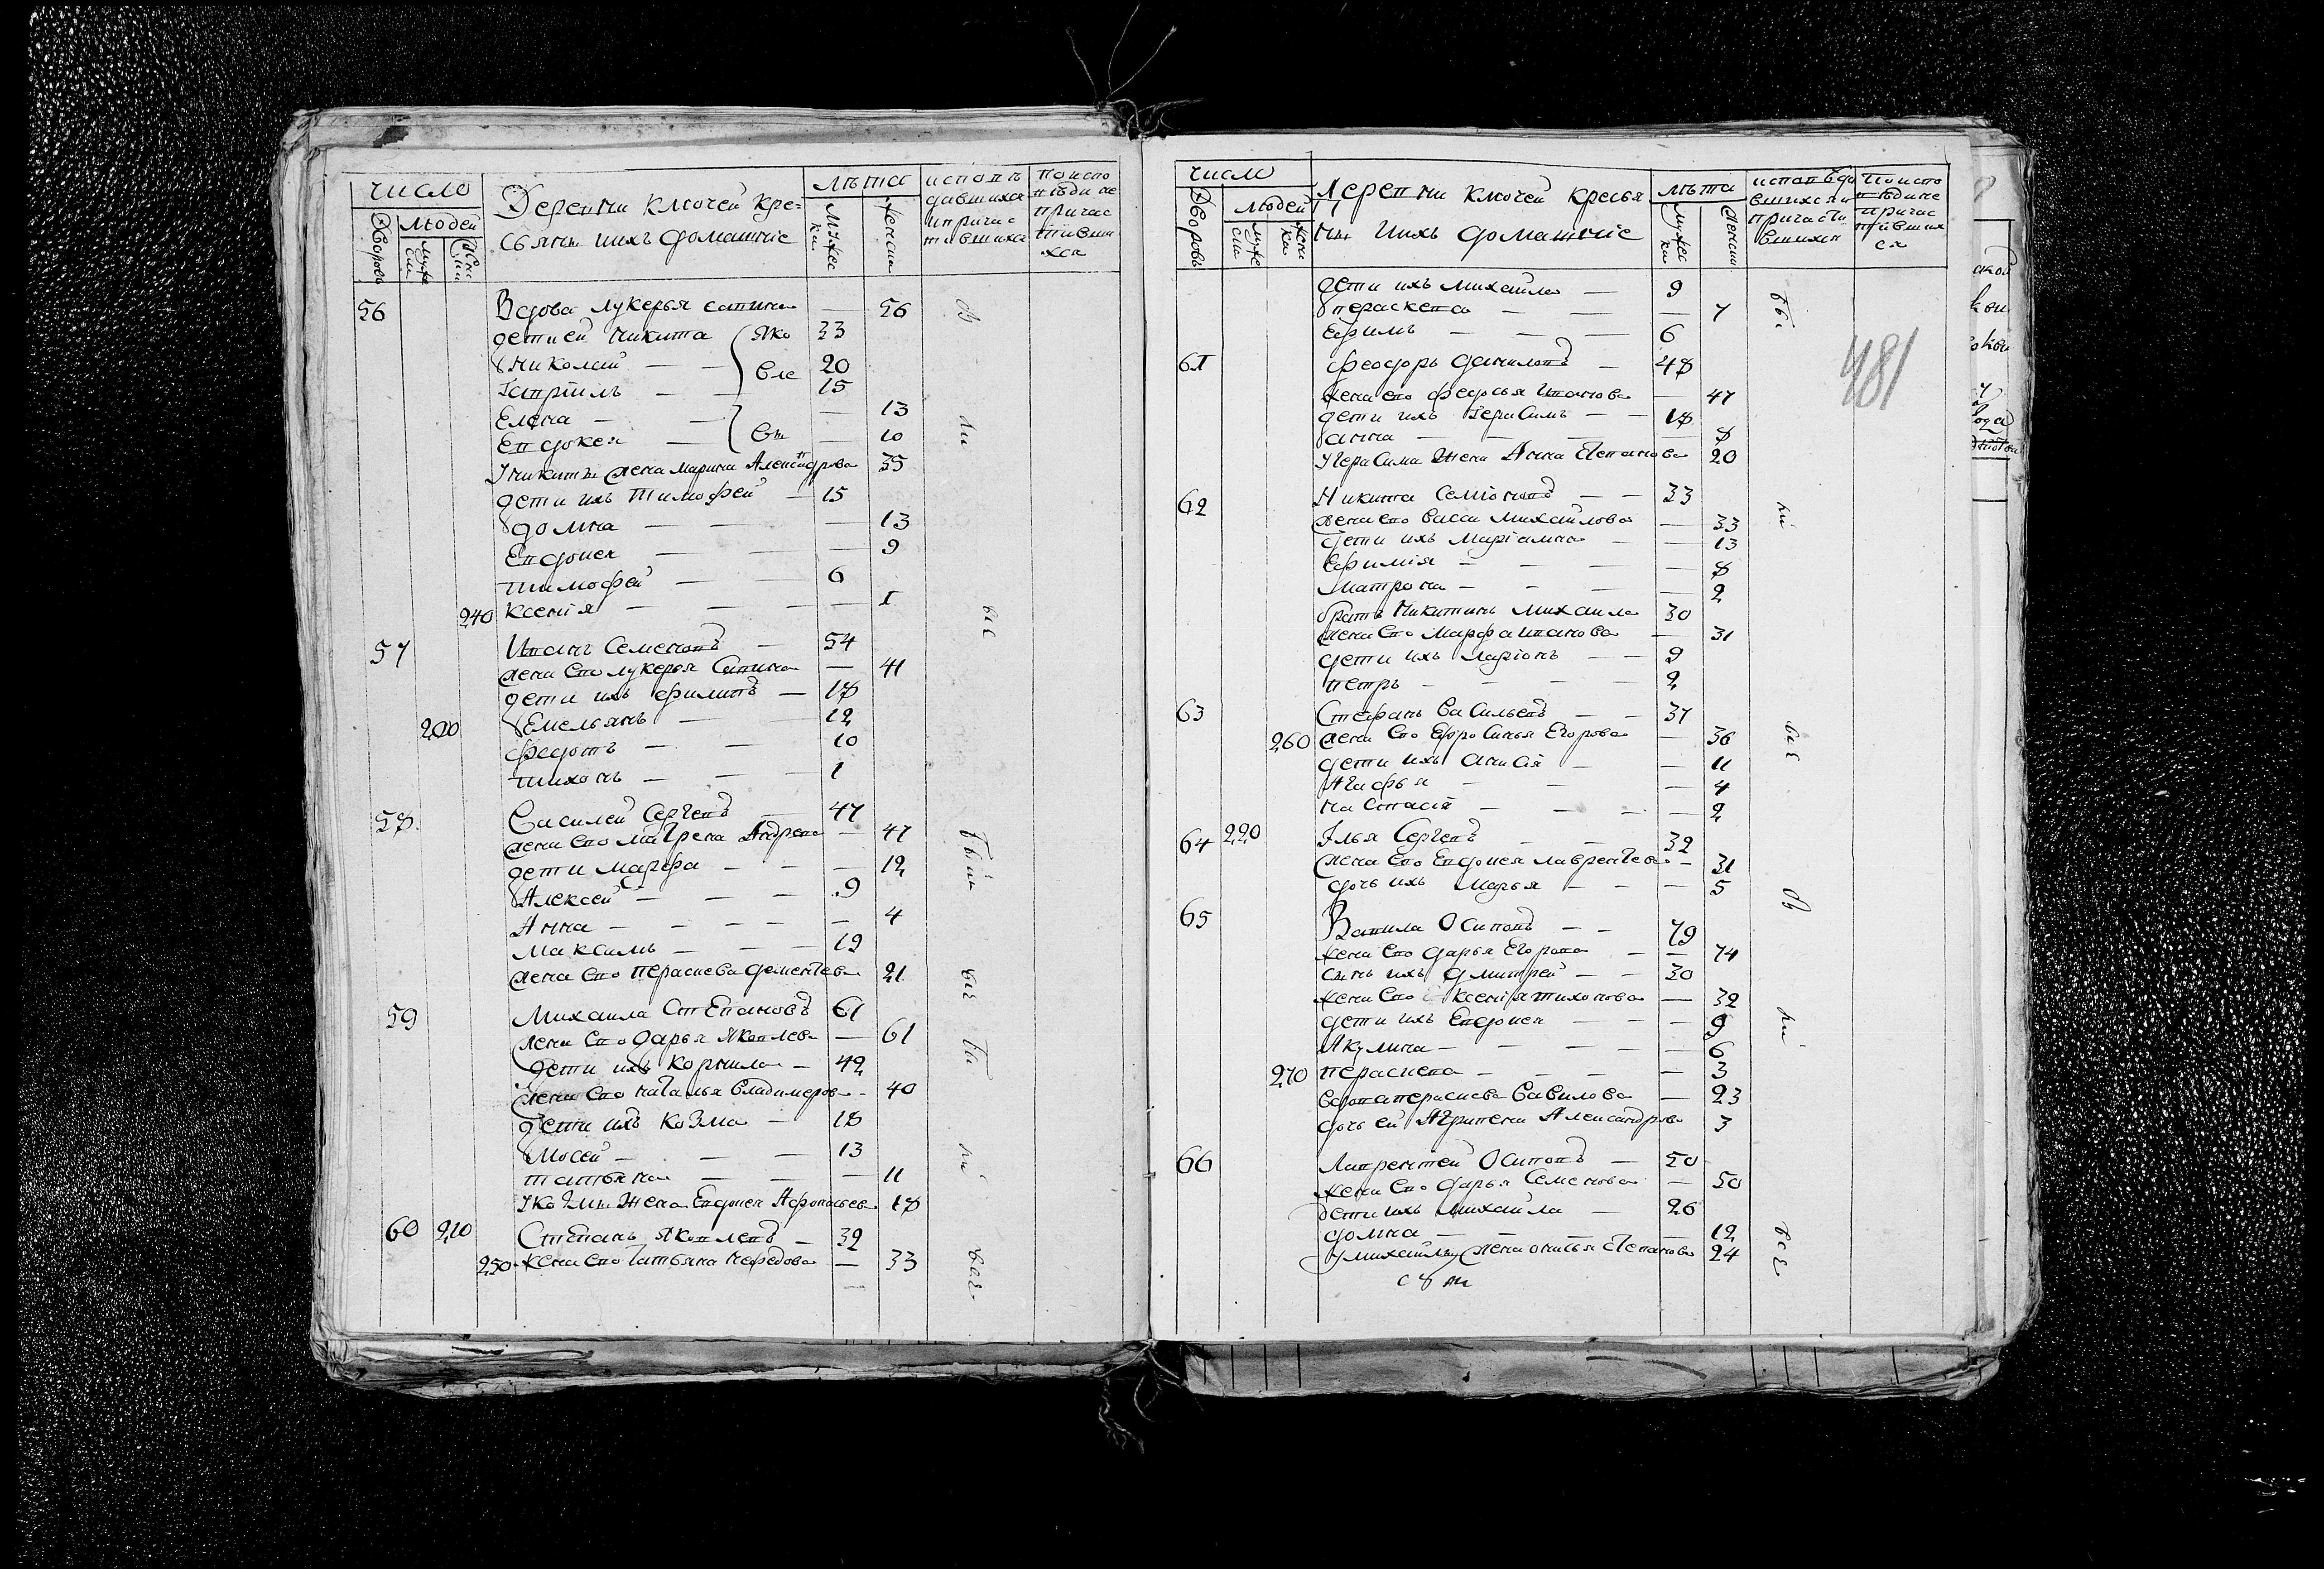 число
Дворовъ
людей
муже
ска
женска
Деревни ключей кре=
стьяны ихъ домашніе
лѣта
мужес
ка
женска
исповѣ
давшихся
и причас
тившихся
по испо
вѣди не
причас
тивши
хся
56 Вдова лукерья савина — 56
дети ей никита Яко 33
Николай — — 20
вле
Гаврiилъ — — 15
Елена — — 13
Евдокея — вы — 10
У никиты жена марина Александрова 35
дети ихъ Тимофей — 15
домна — — — 13
Евдокея — — — 9
тимофей — — 6
240 ксенiя — — — — 1
57 Иванъ Семеновъ — 54
жена его лукерья Савина — 41
дети ихъ филипъ — 18
200 Емельянъ — 12
федотъ — — 10
тихонъ — — — 1
58 Василей Сергеевъ — 47
жена его матрена Андреева — 47
дети марфа — — — 12
Алексей — — — 9
Анна — — — — — 4
максимъ — — — 19
жена его параскева дементева 21
59 Михаила Степановъ 61
жена его дарья Яковлева — 61
дети ихъ корнила — 42
жена его наталья владимерова — 40
дети ихъ козма — 18
Мосей — — — 13
татьяна — — 11
У козмы жена Евдокея Афонасьева 18
60 210 Степанъ Яковлевъ — 32
250 жена его татьяна нефедова — 33
число
Дворовъ
людей
муже
ска
женс
ка
Деревни ключей кресья
ны ихъ домашніе
лѣта
мужес
ка
женска
исповѣда
вшихся и
причасти
вшихся
по испо
вѣди не
причас
тивших
ся
481
дети ихъ михайла — 9
параскева — — — 7
Ефимъ — — — 6
61 феодоръ даниловъ — 48
жена его федосья иванова — 47
дети ихъ Герасимъ — — 18
анна — — — — 8
У герасима жена Анна Степанова 20
62 Никита Семiоновъ — — 33
жена его васса михайлова — 33
дети ихъ марiамна — — 13
Ефимiя — — — — 8
матрона — — — — 2
братъ никитинъ михаила 30
жена его марфа иванова — 31
дети ихъ ларiонъ — — 9
петръ — — — — 2
63 Стефанъ васильевъ — — 37
260 жена его Ефросинья Егорова — 36
дети ихъ анисiя — — 11
Агафья — — — 4
настасiя — — — — 2
64 220 Илья Сергеевъ — — 32
жена его Евдокея лаврентева — 31
дочь ихъ марья — — — 5
65 Вавила Осиповъ — — 79
жена его дарья Егорова — — 74
сынъ ихъ дмитрей — — 30
жена его ксенiя тихонова — 32
дети ихъ Евдокея — — — 9
Акулина — — — — — 6
270 параскева — — — — 3
вдова параскева вавилова — 23
дочь ей Агрипена Александрова 3
66 Лаврентей Осиповъ — 50
жена его дарья Семенова — 50
дети ихъ михайла — 26
домна — — — — 12
У михайлы жена Степанова 24